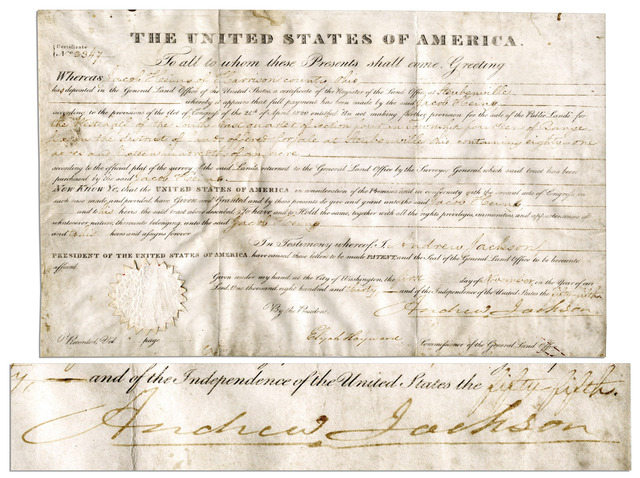 THE UNITED STATES OF AMERICA.
Certificate
No. 3347
To all to whom these Presents shall come, Greeting
Whereas, Jacob of Harrison County Ohio
has deposited in the General Land Office of the United States, a certificate of the Register of the Land Office at Steubenville
whereby it appears that full payment has been made by the said Jacob
according to the provisions of the Act of Congress of the 24th of April 1820 entitled "An act making further provision for the sale of the Public Lands" for
the of the quarter of section in Township of Range
in the district of lands offered for sale at Steubenville Ohio containing eighty one
acres and hundredths of an acre
according to the official plat of the survey of the said Lands returned to the General Land Office by the Surveyor General which said tract has been
purchased by the said Jacob
Now Know Ye, that the UNITED STATES OF AMERICA in consideration of the Premises and in conformity with the several acts of Congress
such case made and provided have Given and Granted and by these presents do give and grant unto the said Jacob
and to his heirs the said tract above described To have and to Hold the same, together with all the rights privileges, immunities and appurtenances
whatsoever nature, thereunto belonging, unto the said Jacob
and to his heirs and assigns forever
In Testimony whereof I, Andrew Jackson
PRESIDENT OF THE UNITED STATES OF AMERICA have caused these letters to be made PATENT, and the Seal of the General Land Office to be hereunto
affixed.
Given under my hand at the City of Washington, the day of November in the Year of our
Lord one thousand eight hundred and thirty and of the Independence of the United States the fifty fifth
By the President Andrew Jackson
Elijah Hayward Commissioner of the General Land Office
Recorded, Vol. page
and of the Independence of the United States the fifty fifth.
Andrew Jackson